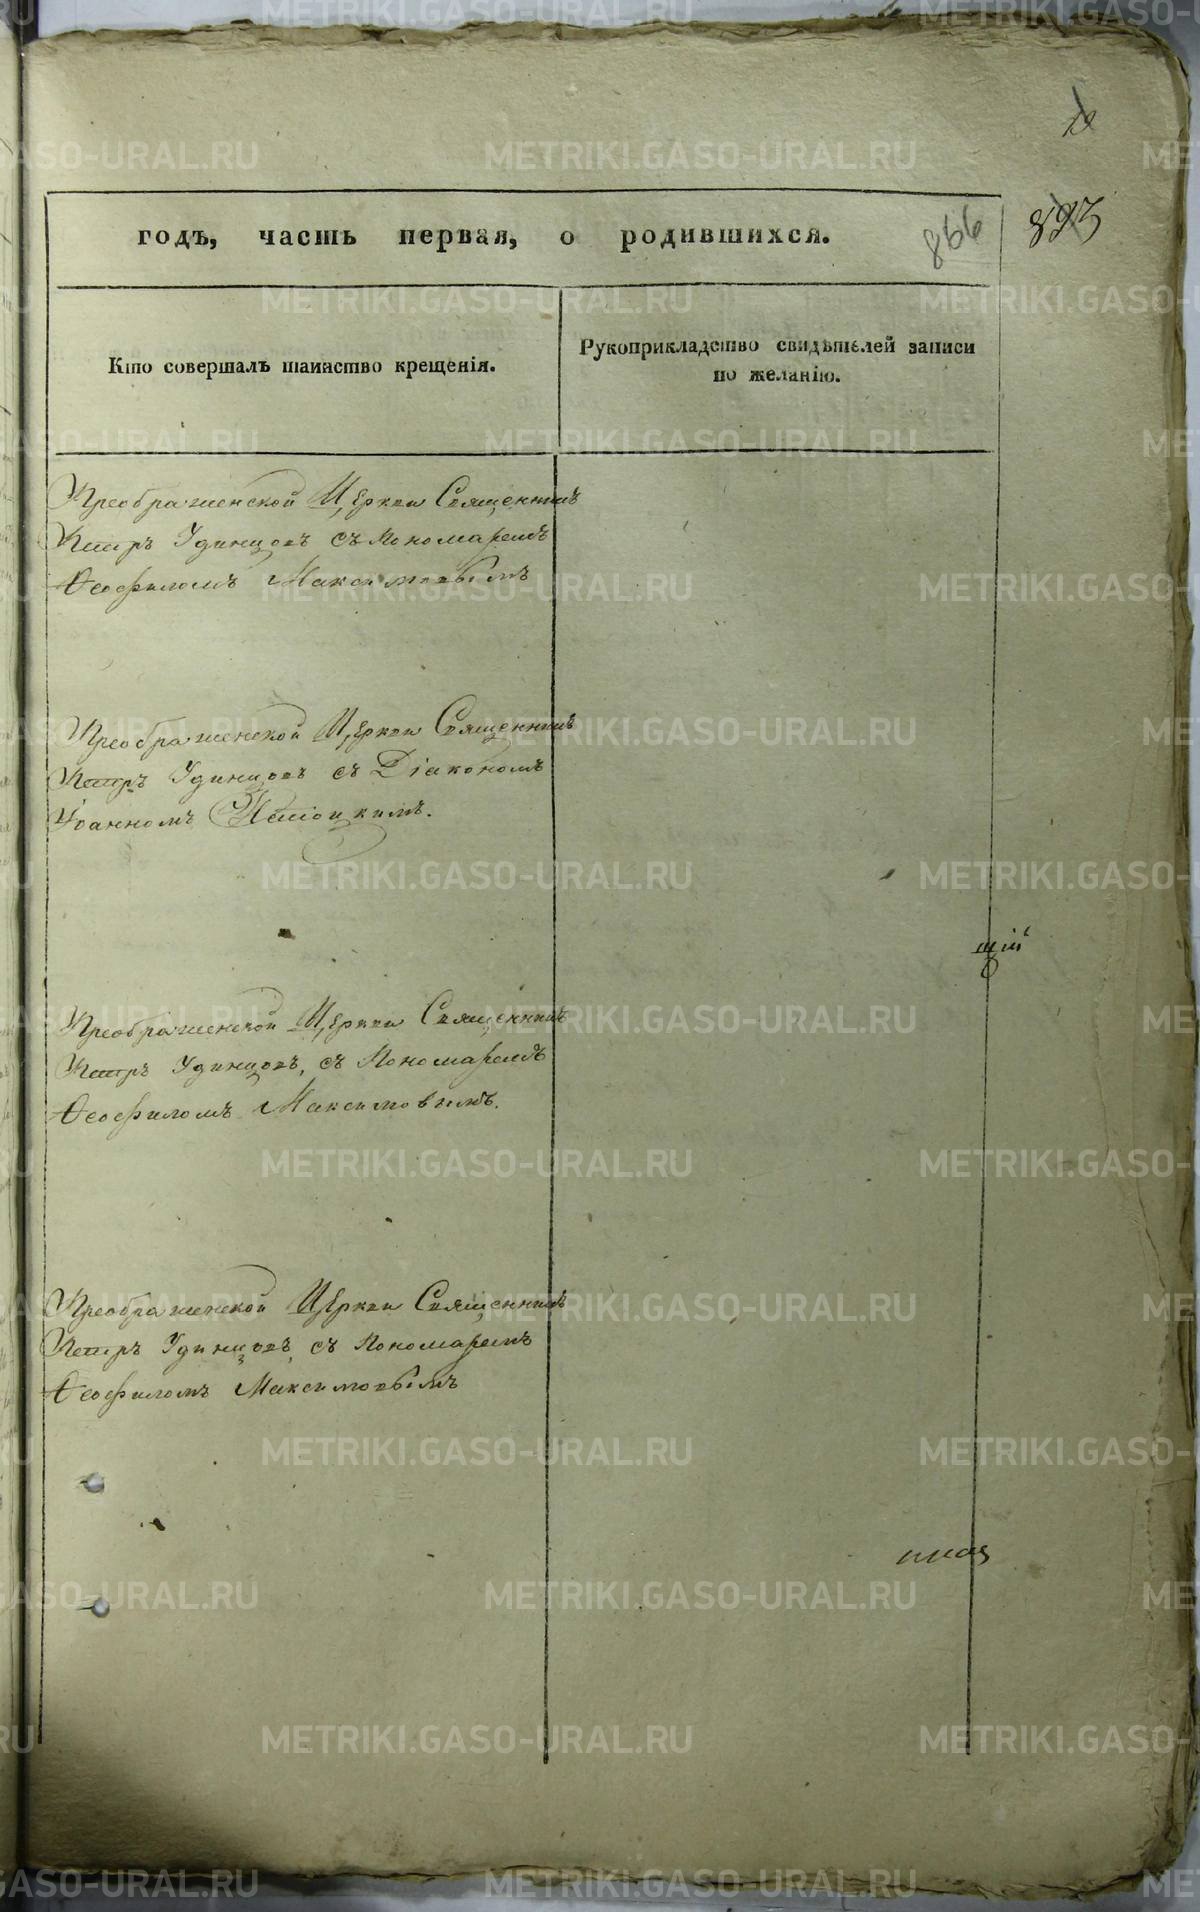 893
866
годъ, часть первая, о родившихся.
Кто совершалъ таинство крещенія.
Рукоприкладство свидѣтелей записи
по желанію.
Преображенской Церкви Священникъ
Петръ Удинцовъ съ Пономаремъ
Ѳеофиломъ Максимовымъ
Преображенской Церкви Священникъ
Петръ Удинцовъ съ Діакономъ
Іоанномъ
щій
Преображенской Церкви Священникъ
Петръ Удинцовъ, съ Пономаремъ
Ѳеофиломъ Максимовымъ.
Преображенской Церкви Священникъ
Петръ Удинцовъ, съ Пономаремъ
Ѳеофиломъ Максимовымъ
METRIKI.GASO-URAL.RU